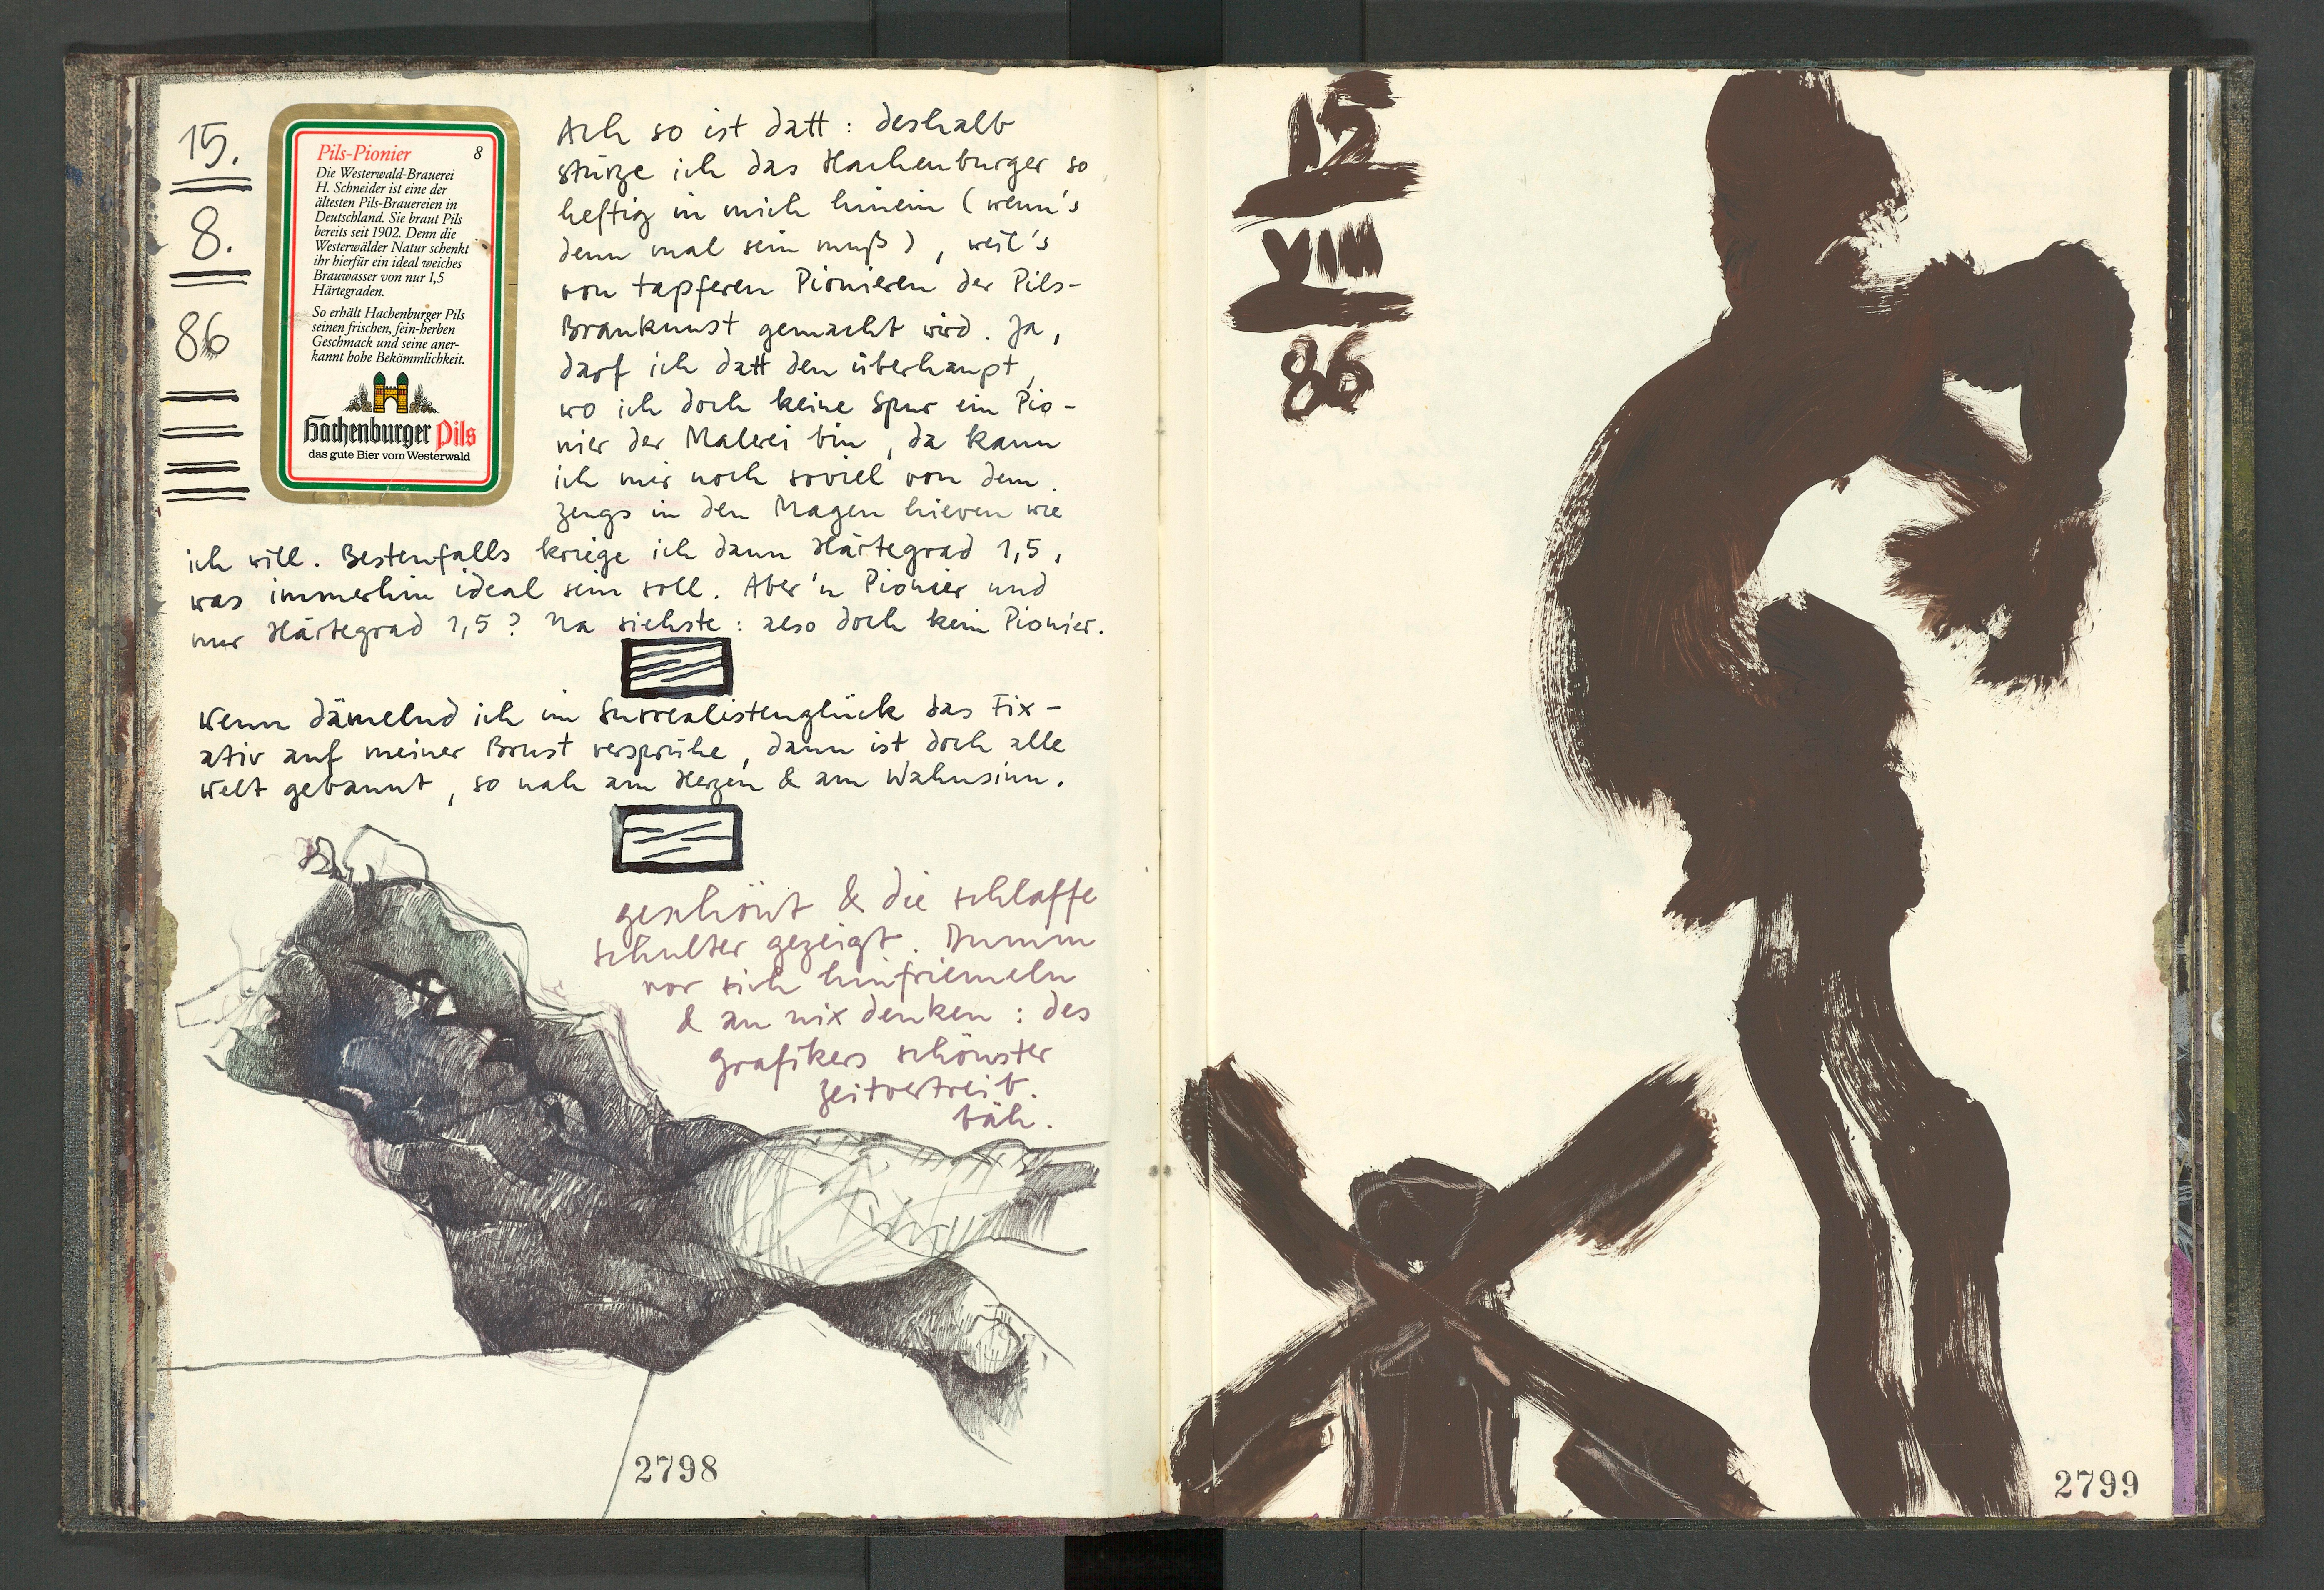 15.
8.
86
Pils-Pionier 8
Die Westerwald-Brauerei
H. Schneider ist eine der
ältesten Pils-Brauereien in
Deutschland. Sie braut Pils
bereits seit 1902. Denn die
Westerwälder Natur schenkt
ihr hierfür ein ideal weiches
Brauwasser von nur 1,5
Härtegraden.
So erhält Hachenburger Pils
seinen frischen, fein-herben
Geschmack und seine aner-
kannt hohe Bekömmlichkeit.
Hachenburger Pils
das gute Bier vom Westerwald
Ach so ist datt: deshalb
stürze ich das Hachenburger so
heftig in mich hinein (wenn's
denn mal sein muß), weil's
von tapferen Pionieren der Pils-
Braukunst gemacht wird. Ja,
darf ich datt den überhaupt,
wo ich doch keine Spur ein Pio-
nier der Malerei bin, da kann
ich mir noch soviel von dem
zeugs in den Magen hieven wie
ich will. Bestenfalls kriege ich dann Härtegrad 1,5,
was immerhin ideal sein soll. Aber'n Pionier und
nur Härtegrad 1,5? Na siehste: also doch kein Pionier.
Wenn dämelnd ich im Surrealistenglück das Fix-
ativ auf meiner Brust versprühe, dann ist doch alle
Welt gebannt, so nah am Herzen & am Wahnsinn.
geschönt & die schlaffe
schulter gezeigt. Dumm
vor sich hinfriemeln
& an nix denken: des
grafikers schönster
zeitvertreib.
bäh.
2798
15
VIII
86
2799